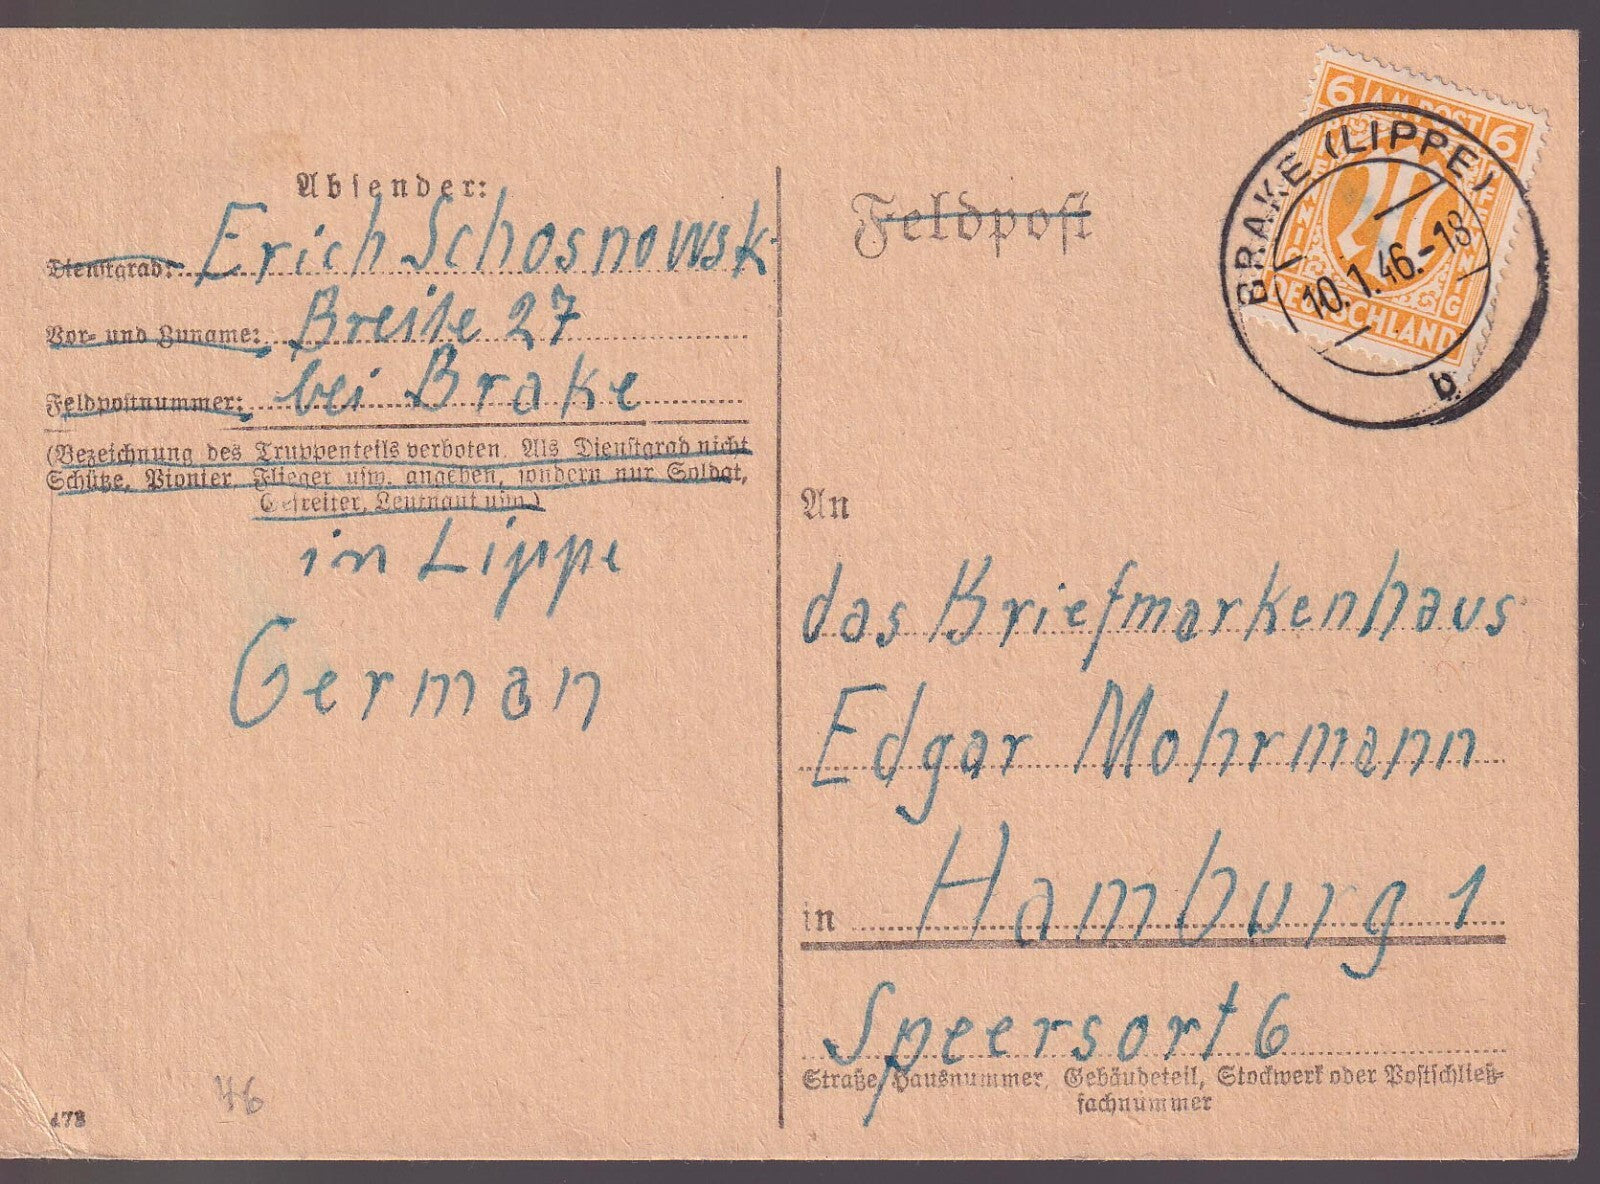 Absender:
Dienstgrad: Erich Schosnowsk
Vor- und Zuname: Breite 27
Feldpostnummer: bei Brake
(Bezeichnung des Truppenteils verboten. Als Dienstgrad nicht
Schütze, Pionier, Flieger usw. angeben, sondern nur Soldat,
Gefreiter, Leutnant usw.)
in Lippe
German
46
Feldpost
6 AM POST 6
PFENNIG PFENNIG
M
DEUTSCHLAND
BRAKE (LIPPE)
10.1.46.-18
b
An
das Briefmarkenhaus
Edgar Mohrmann
in Hamburg 1
Speersort 6
Straße, Hausnummer, Gebäudeteil, Stockwerk oder Postschließ-
fachnummer